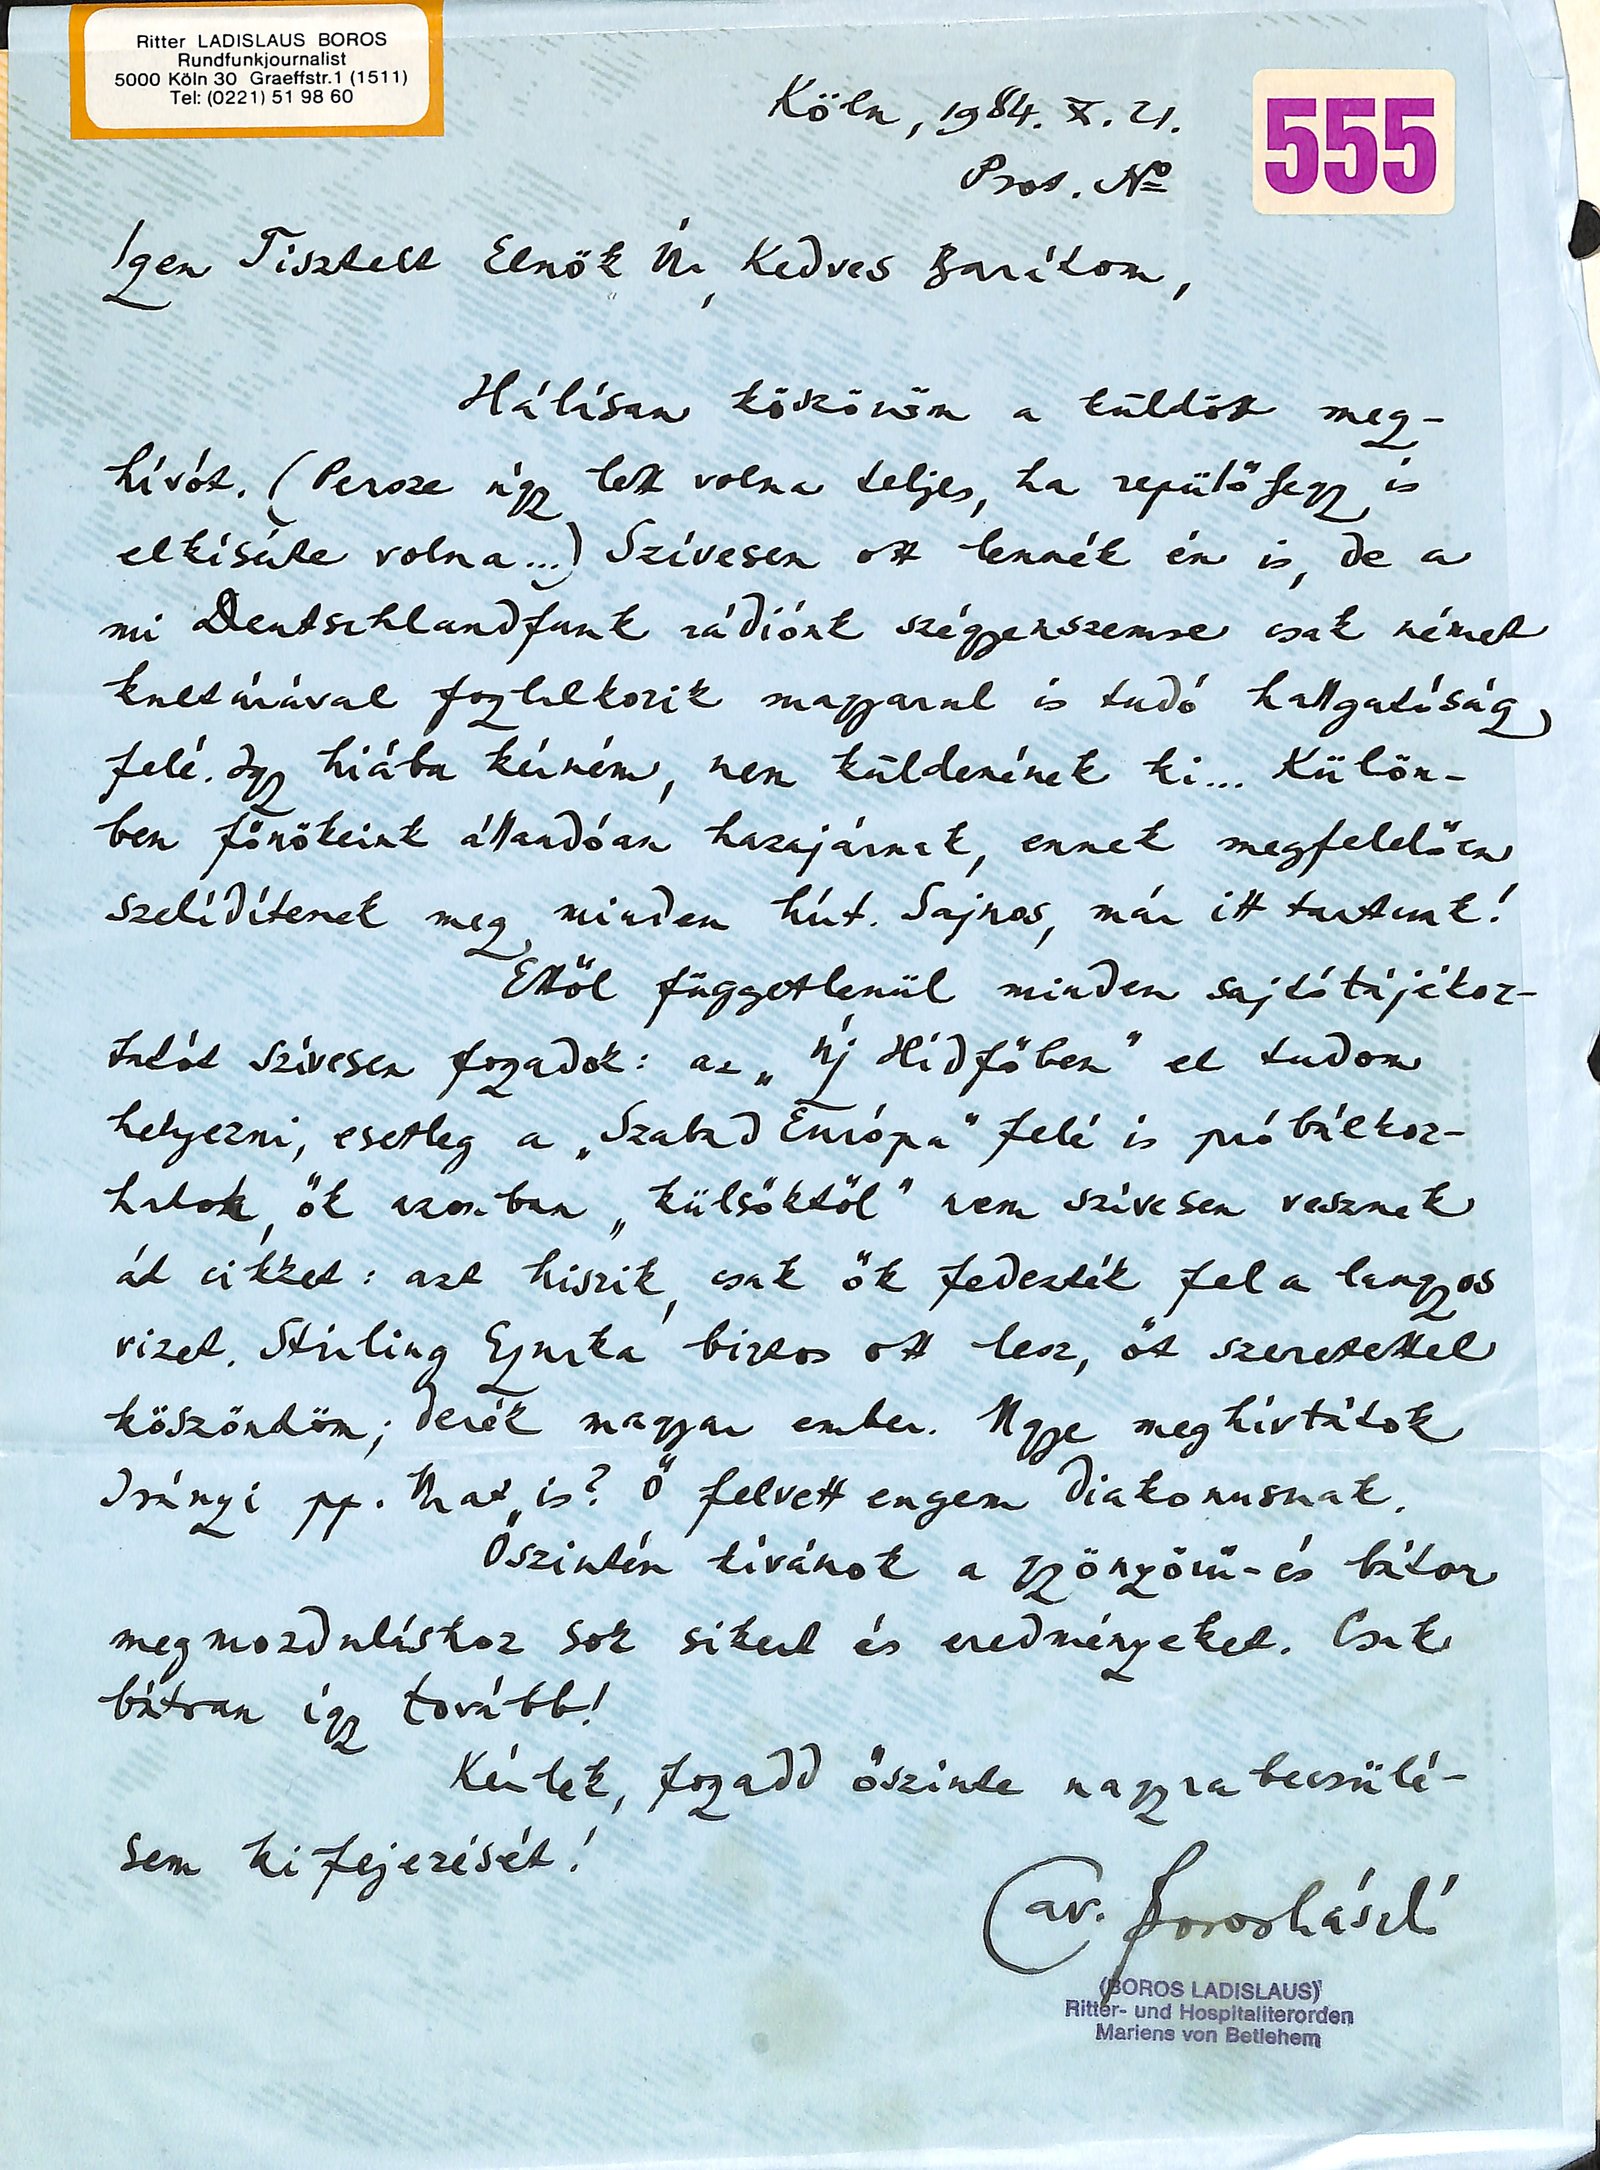 Ritter LADISLAUS BOROS
Rundfunkjournalist
5000 Köln 30 Graeffstr.1 (1511)
Tel: (0221) 51 98 60
Köln, 1984. X. 21.
Prot. No
555
Igen Tisztelt Elnök Úr, Kedves Barátom,
Hálásan köszönöm a küldött meg-
hívót. (Persze úgy lett volna teljes, ha repülőjegy is
elkísérte volna...) Szívesen ott lennék én is, de a
mi Deutschlandfunk rádiónk szégyenszemre csak német
kultúrával foglalkozik magyarul is tudó hallgatóság
felé. Így hiába kérném, nem küldenének ki... Külön-
ben főnökeink állandóan hazajárnak, ennek megfelelően
szelídítenek meg minden hírt. Sajnos, már itt tartunk!
Ettől függetlenül minden sajtótájékoz-
tatót szívesen fogadok: az „Új Hídfőben" el tudom
helyezni, esetleg a „Szabad Európa" felé is próbálkoz-
hatok, ők azonban „külsőktől" nem szívesen vesznek
át cikket: azt hiszik, csak ők fedezték fel a langyos
vizet. Stirling Gyurka biztos ott lesz, őt szeretettel
köszöntöm; derék magyar ember. Ugye meghívtátok
Irányi pp. Urat is? Ő felvett engem diakonusnak.
Őszintén kívánok a gyönyörű-és bátor
megmozduláshoz sok sikert és eredményeket. Csak
bátran így tovább!
Kérlek, fogadd őszinte nagyrabecsülé-
sem kifejezését!
Cav. Boros László
(BOROS LADISLAUS)
Ritter- und Hospitaliterorden
Mariens von Betlehem